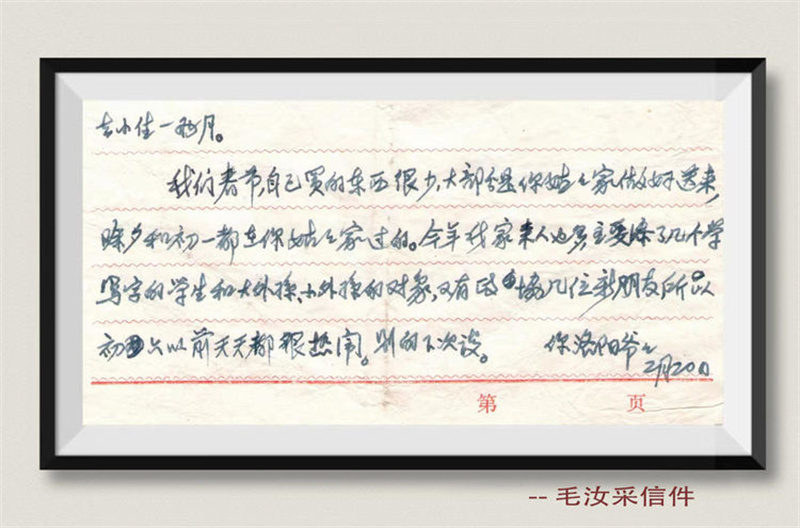 去小住一两月。
我们春节自己买的东西很少,大部分是你姑々家做好送来,
除夕和初一都在你姑々家过的。今年我家来人也多主要除了几个学
写字的学生和大外孙、小外孙的对象,又有几位新朋友所以
初六以前天天都很热闹。别的下次谈。 你洛阳爷々
2月20日
第 页
-- 毛汝采信件